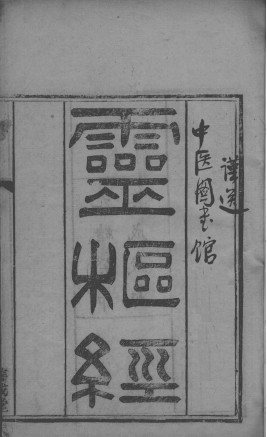 谨送
中医图书馆
靈樞經